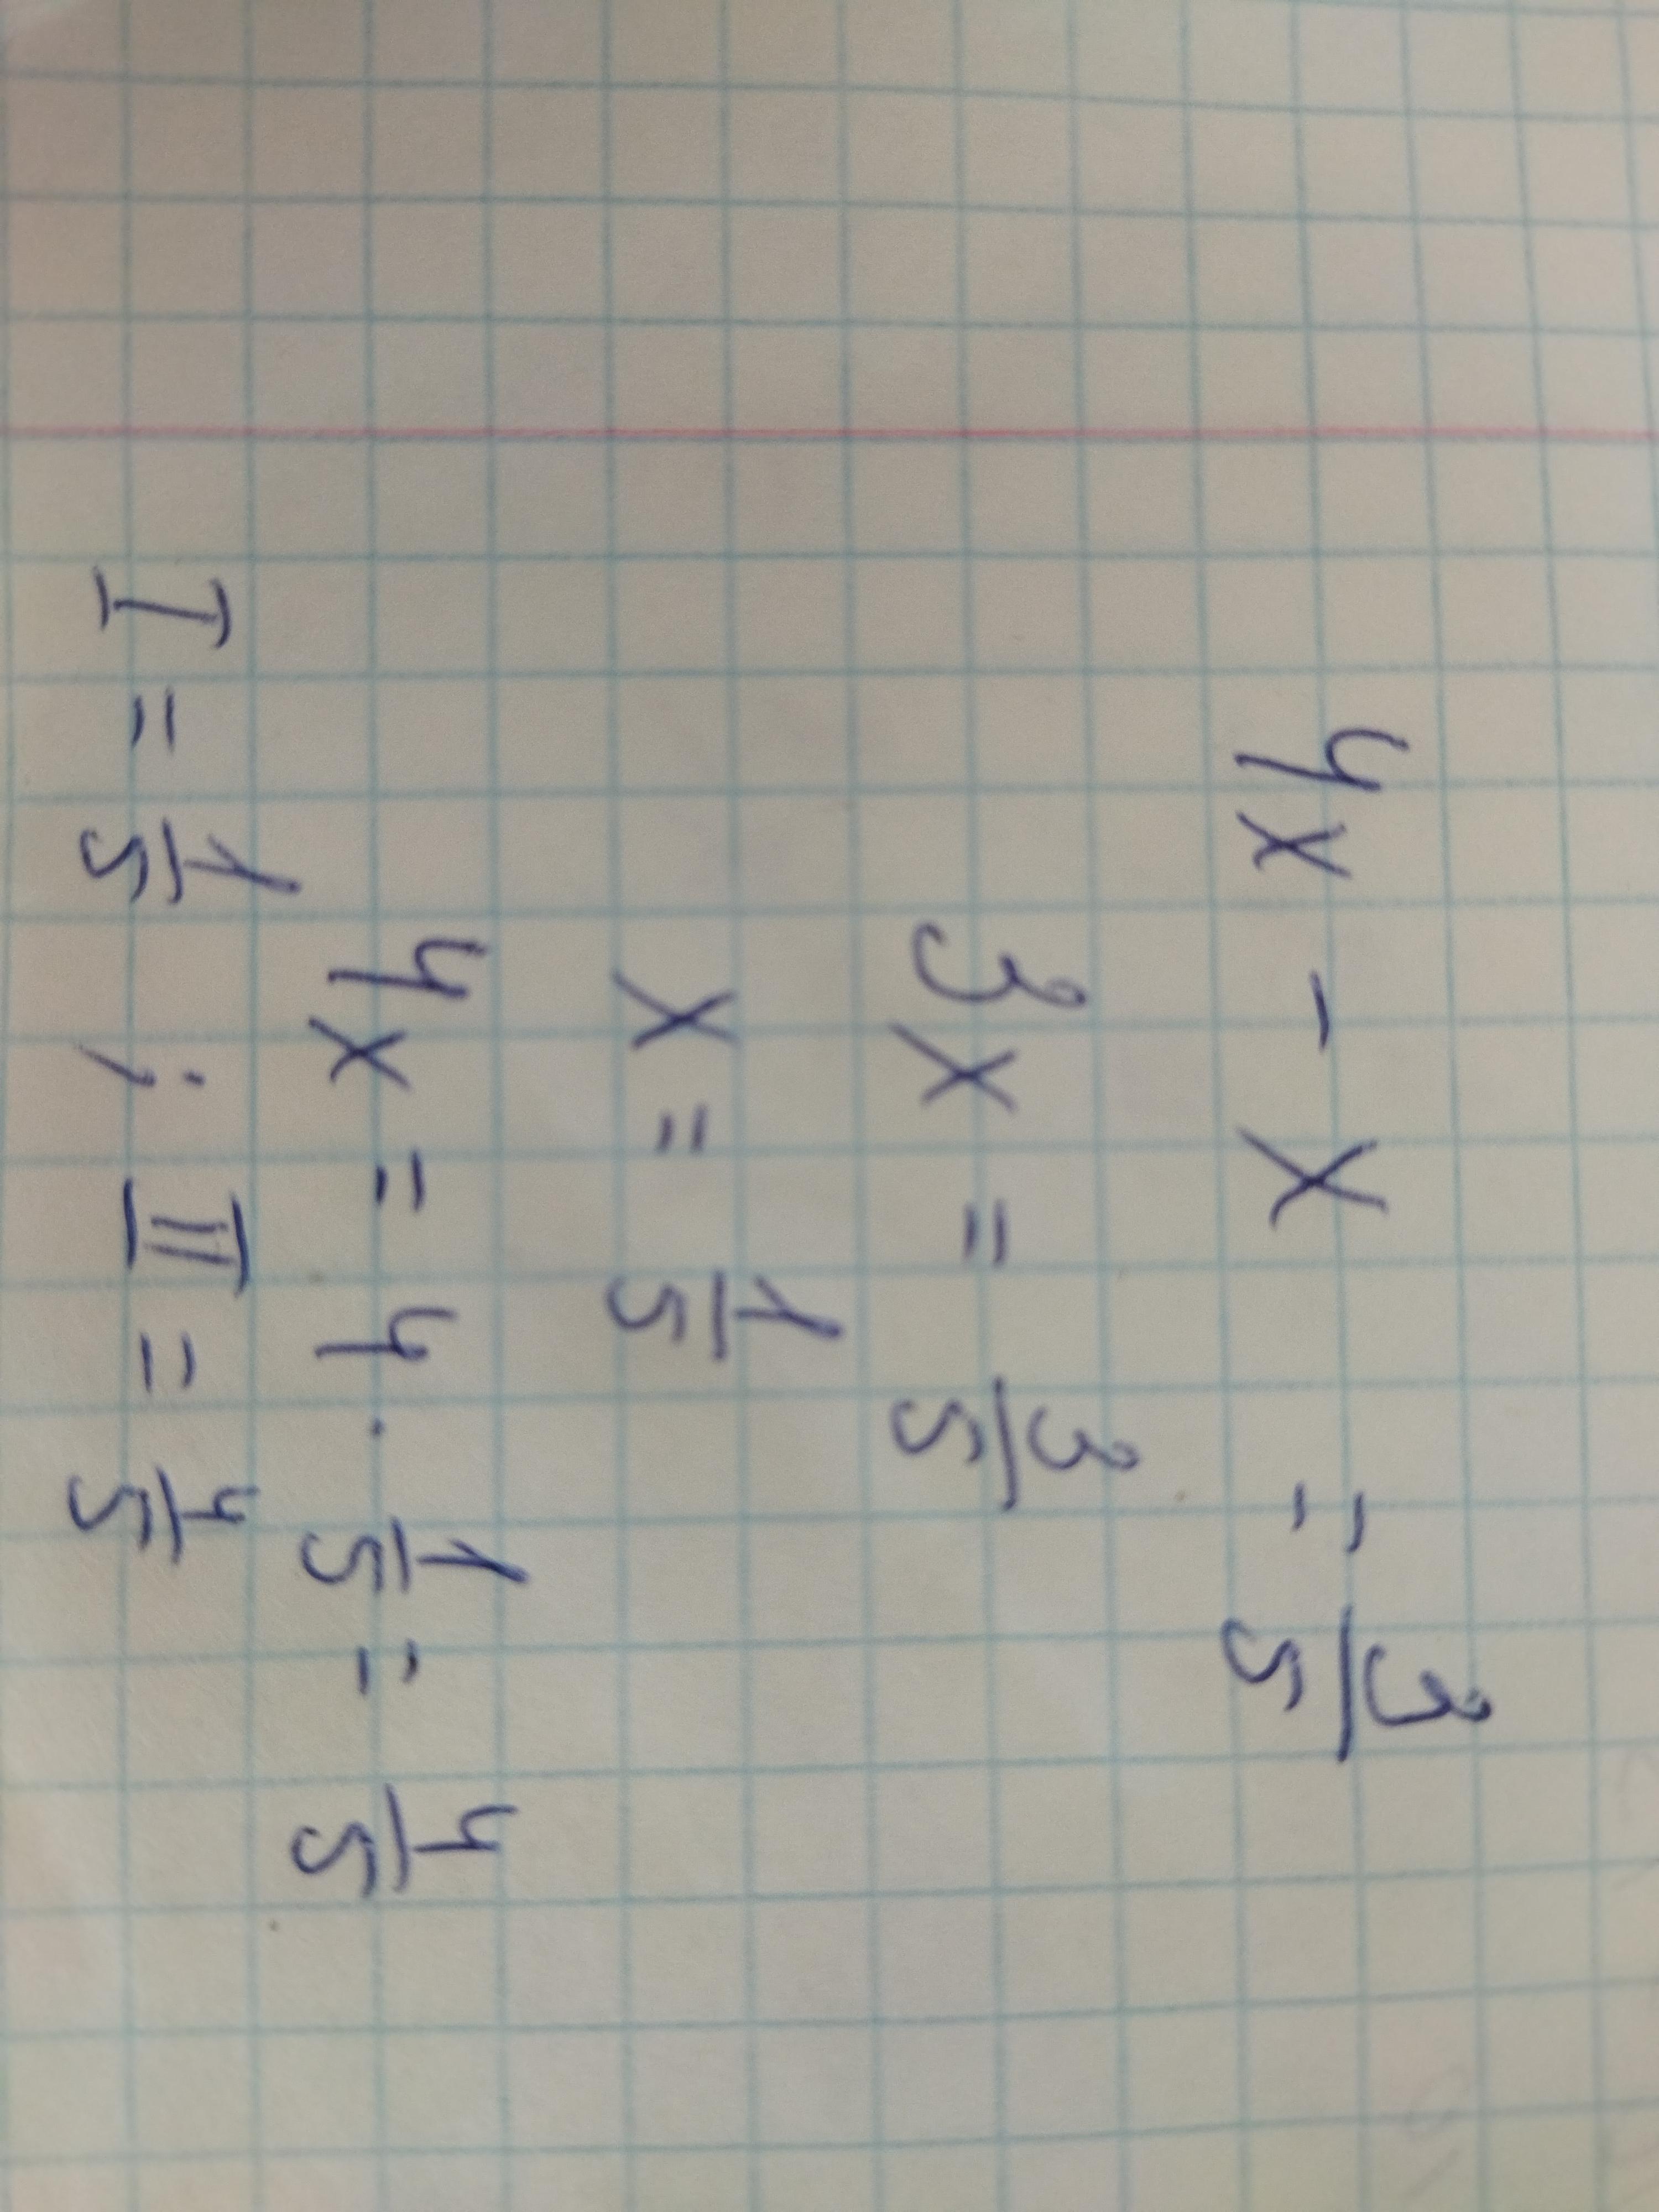 4x - x = 3/5
3x = 3/5
x = 1/5
4x = 4 · 1/5 = 4/5
I = 1/5 ; II = 4/5